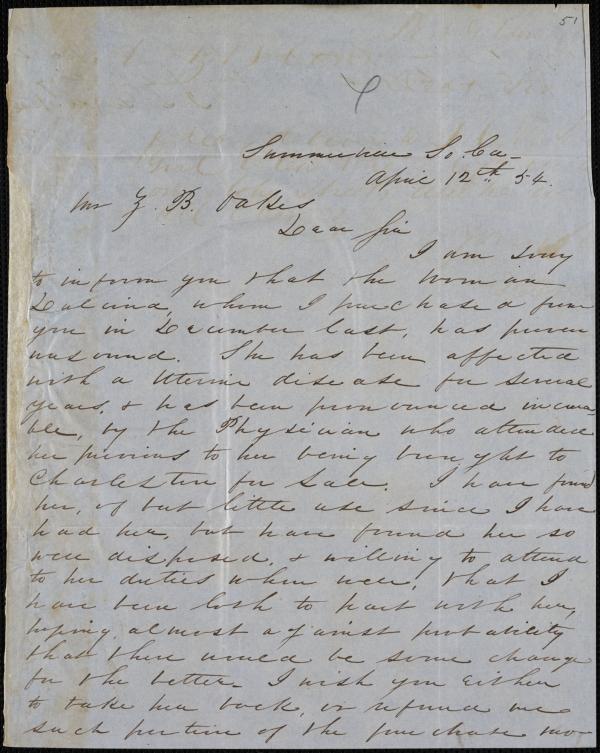 51
Summerville So. Ca-
April 12th 54.
Mr Z. B. Oakes
Dear Sir
I am sorry
to inform you that the woman
Dulcind, whom I purchased from
you in December last, has proven
unsound. She has been affected
with a Uterine disease for several
years, & has been pronounced incura-
ble, by the Physician who attended
her previous to her being brought to
Charleston for sale. I have found
her, of but little use since I have
had her, but have found her so
well disposed, & willing to attend
to her duties when well, that I
have been loth to part with her,
hoping, almost against probability
that there would be some change
for the better. I wish you either
to take her back, or refund me
such portion of the purchase mo-